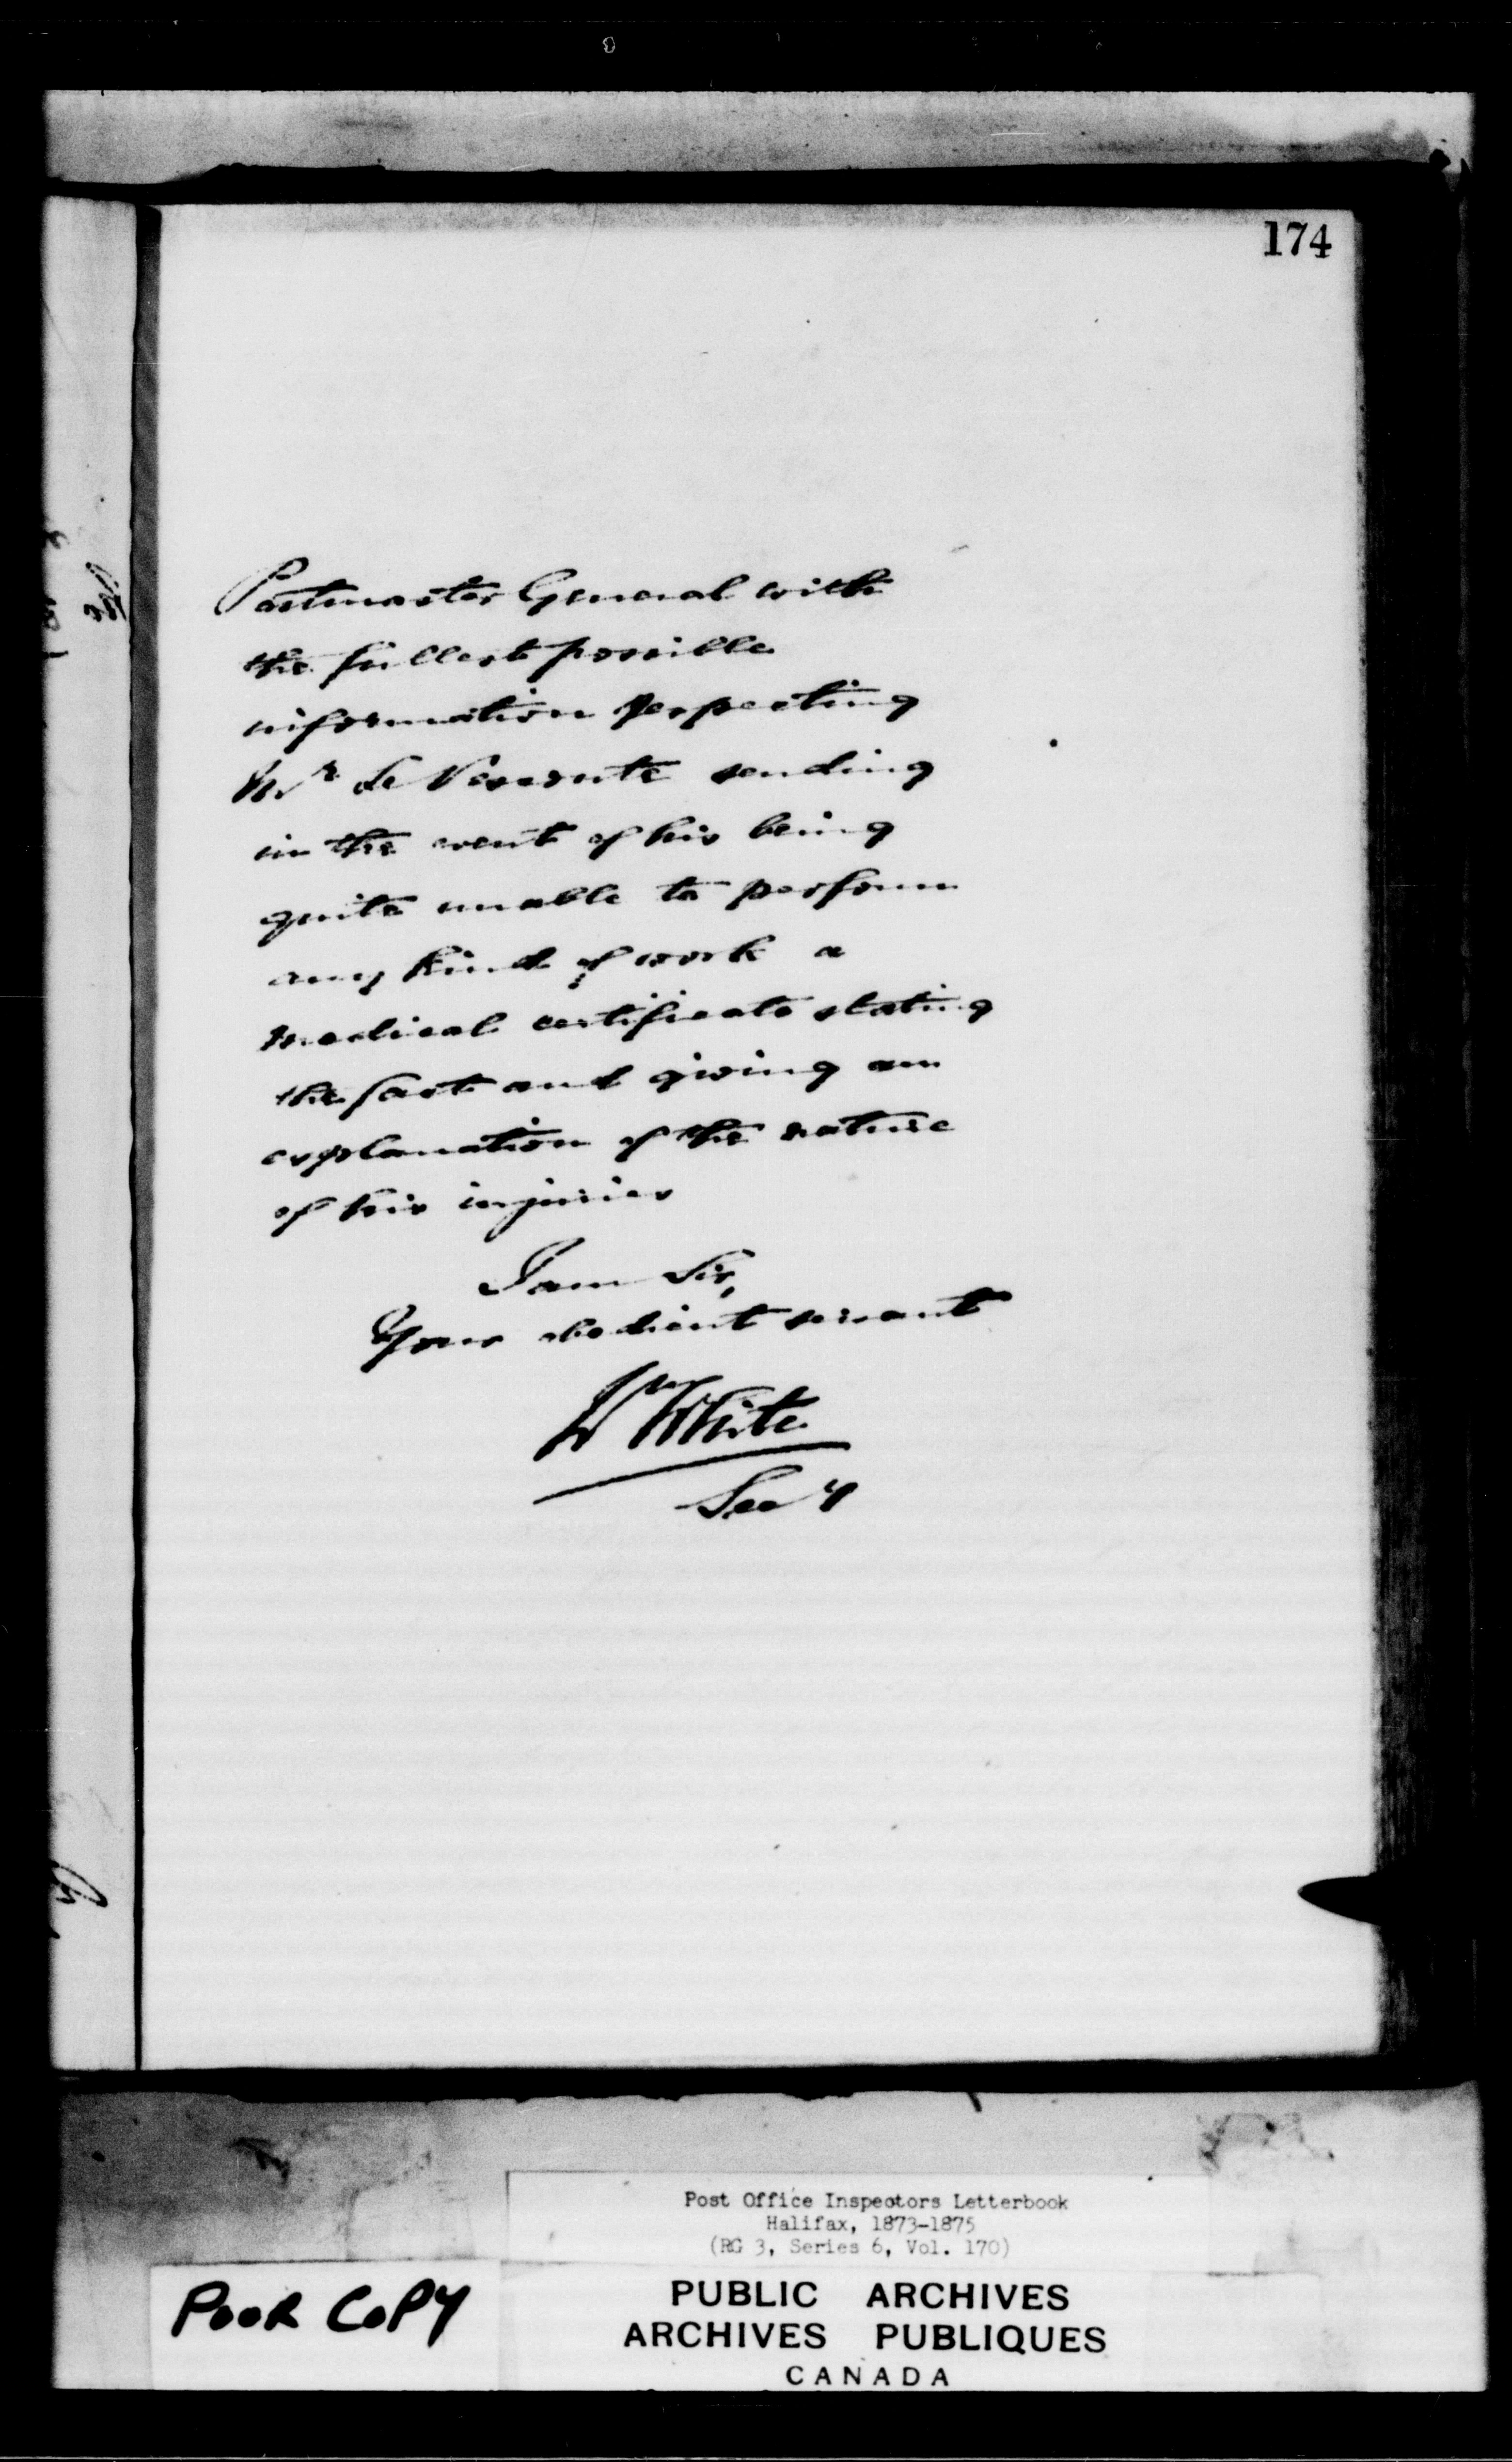 174
Postmaster General with
the fullest possible
information respecting
Mr Le sending
in the event of his being
quite unable to perform
any kind of work a
medical certificate stating
the fact and giving an
explanation of the nature
of his injuries
I am Sir,
Your obedient servant
Wm White
Secy
Post Office Inspectors Letterbook
Halifax, 1873-1875
(RG 3, Series 6, Vol. 170)
POOR COPY
PUBLIC ARCHIVES
ARCHIVES PUBLIQUES
CANADA